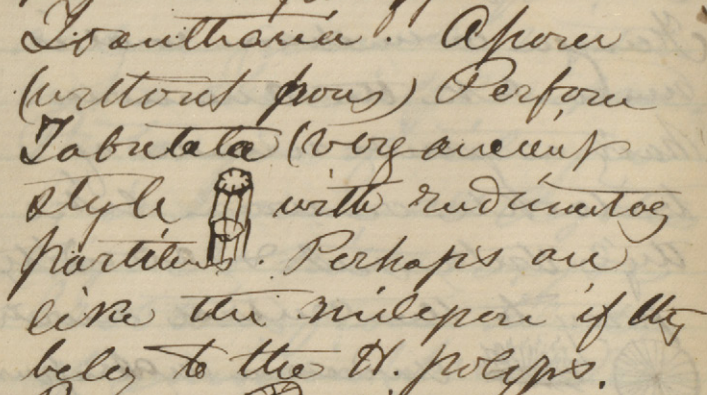 Zoantharia. Aporer
(without pores) Perfore
Tabulata (very ancient
style with rudimentary
partitions. Perhaps are
like the milepore if they
belog to the H. polyps.